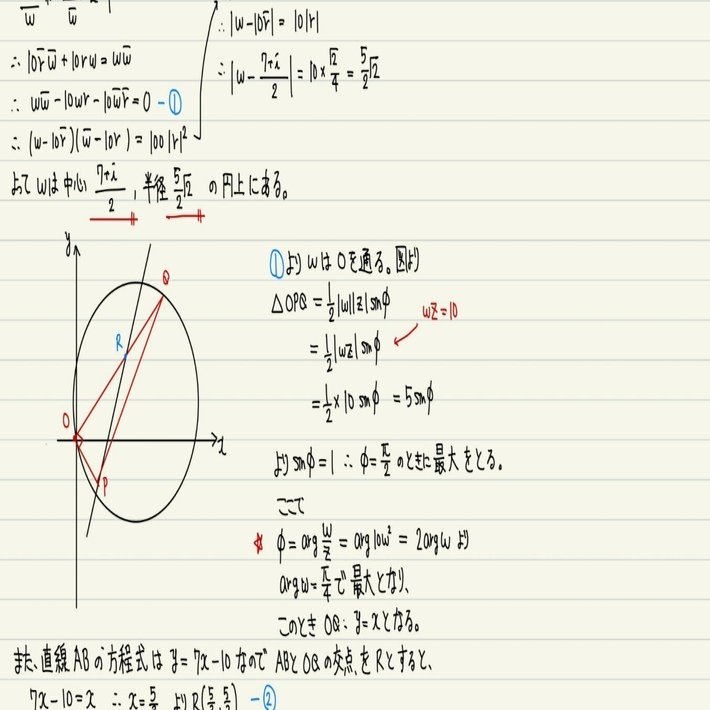 ∴ 10r̄w̄ + 10rw = ww̄
∴ ww̄ - 10wr - 10w̄r̄ = 0 - ①
∴ (w - 10r̄)(w̄ - 10r) = 100|r|²
∴ |w - 10r̄| = 10|r|
∴ |w - (7+i)/2| = 10 × √2/4 = 5/2 √2
よって wは中心 (7+i)/2 , 半径 5/2 √2 の円上にある。
y
Q
R
O
x
P
①より wは Oを通る。図より
△OPQ = 1/2 |w||z| sinφ
wz = 10
= 1/2 |wz| sinφ
= 1/2 × 10 sinφ = 5 sinφ
より sinφ = 1 ∴ φ = π/2 のときに最大をとる。
ここで
φ = arg w/z = arg 10w² = 2arg w より
arg w = π/4 で最大となり、
このとき OQ: y = x となる。
また、直線 AB の方程式は y = 7x - 10 なので ABと OQ の交点をRとすると、
7x - 10 = x ∴ x = 5/3 より R(5/3, 5/3) - ②